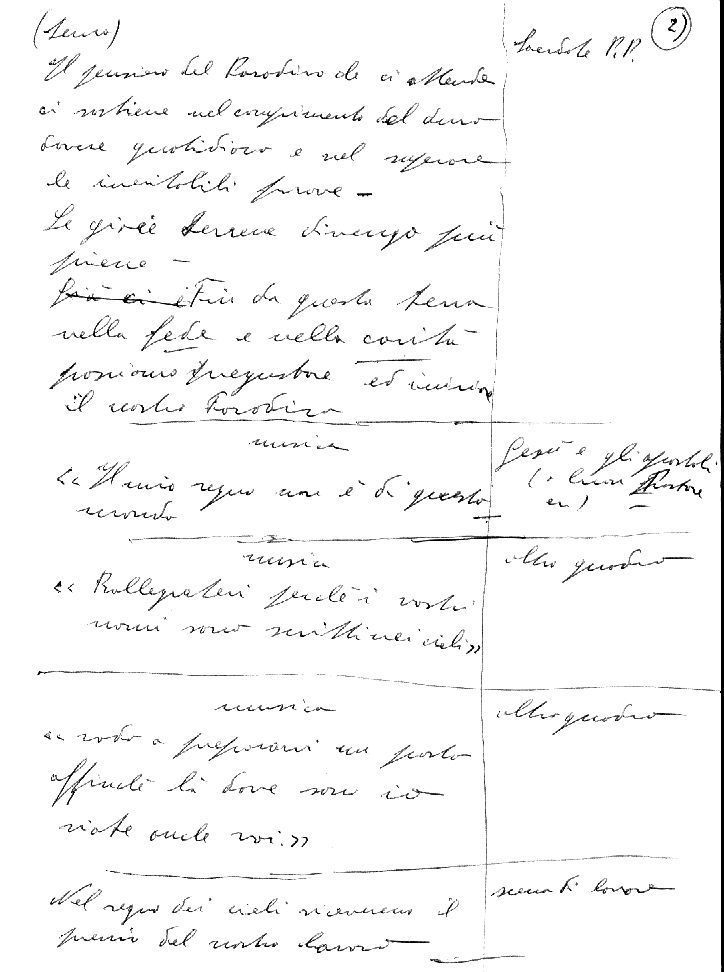 2)
(tema)
Sacerdote P.P.
Il pensiero del Paradiso che ci attende
ci sostiene nel compimento del duro
dovere quotidiano e nel superare
le inevitabili prove –
Le gioie terrene divengo più
piene –
Già ci è Fin da questa terra
nella fede e nella carità
possiamo pregustare ed iniziare
il nostro Paradiso
musica
Gesù e gli apostoli
(o buon Pastore
<< Il mio regno non è di questo
mondo
musica
altro quadro
<< Rallegratevi perchè i vostri
nomi sono scritti nei cieli >>
musica
altro quadro
<< vado a prepararvi un posto
affinchè là dove sono io
siate anche voi. >>
scena di lavoro
Nel regno dei cieli riceveremo il
premio del nostro lavoro –